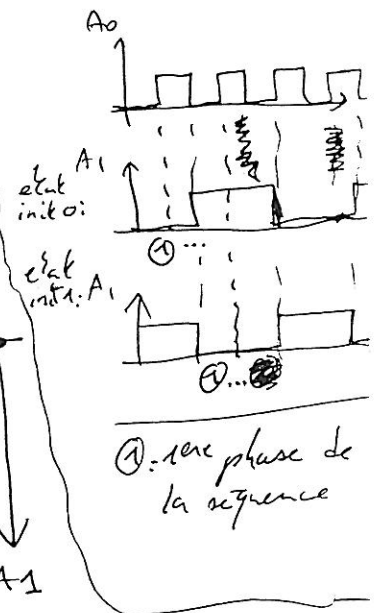 A0
A1
etat
init 0:
① ...
etat
init 1: A1
① ...
①: 1ere phase de
la séquence
A1